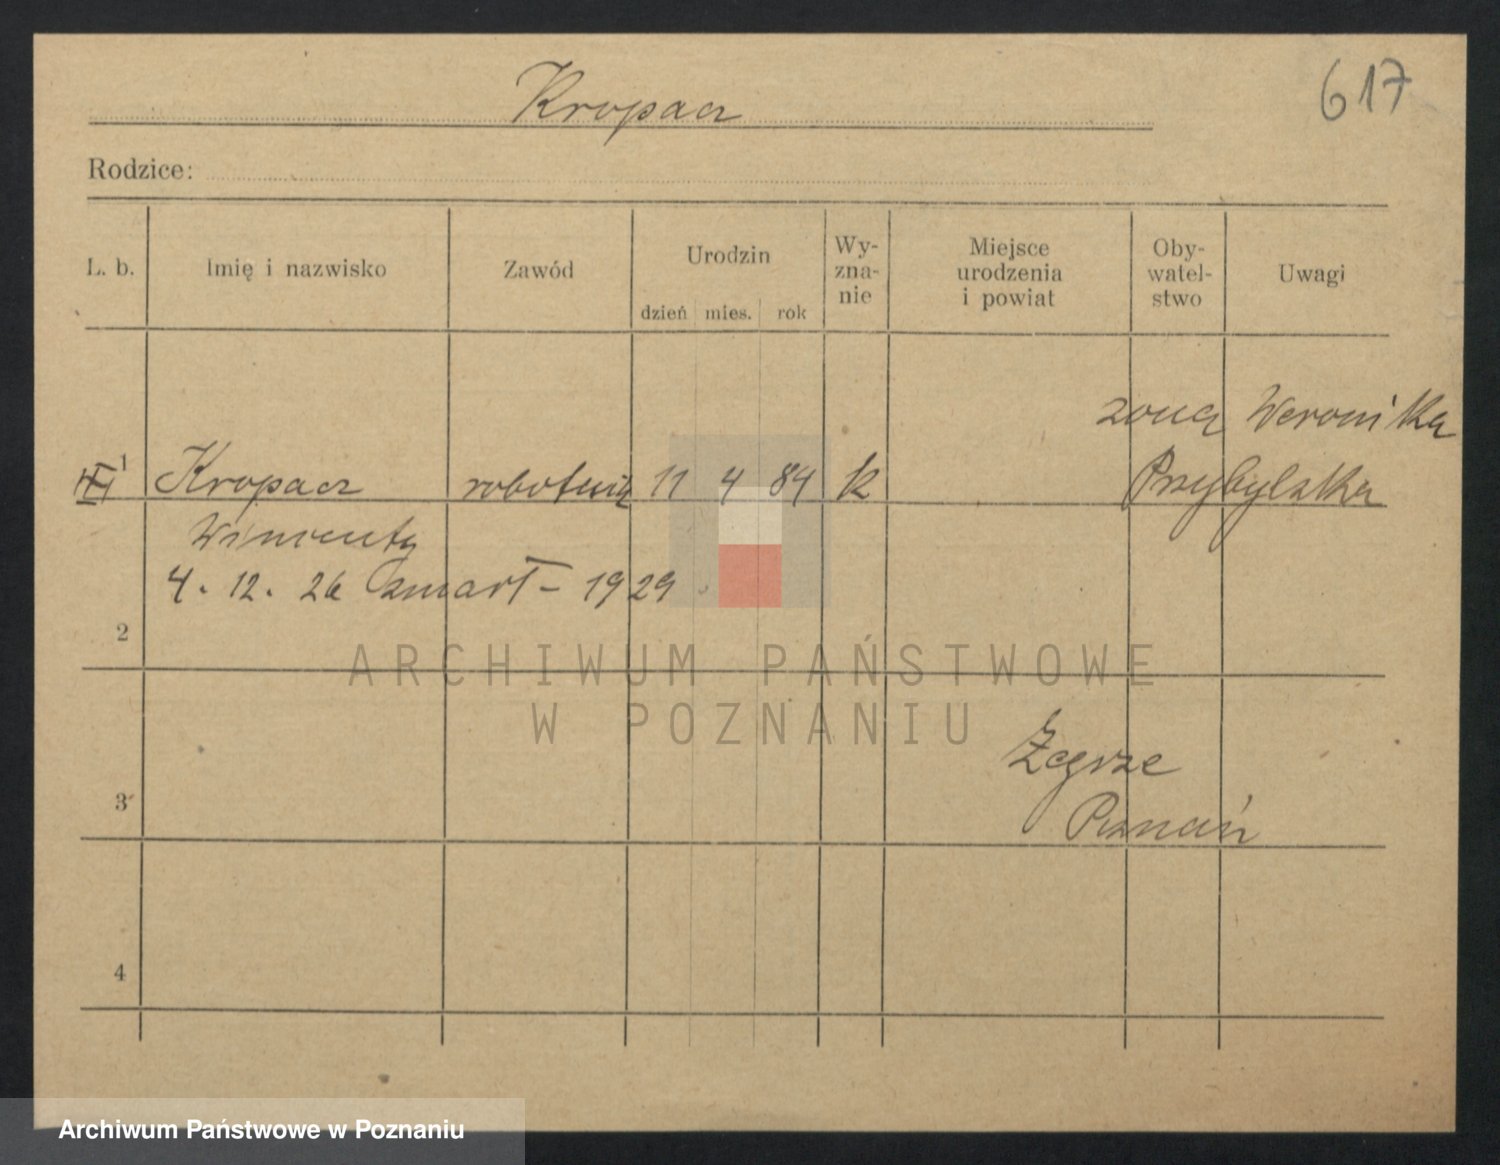 Kropacz
617
Rodzice:
L. b. Imię i nazwisko Zawód Urodzin dzień mies. rok Wy-zna-nie Miejsce urodzenia i powiat Oby-watel-stwo Uwagi
żona Weronika
1 Kropacz robotnik 11 4 84 k Przybylska
Wincenty
4. 12. 26 zmarł – 1929
2
ARCHIWUM PAŃSTWOWE
W POZNANIU
Żegrze
3 Poznań
4
Archiwum Państwowe w Poznaniu